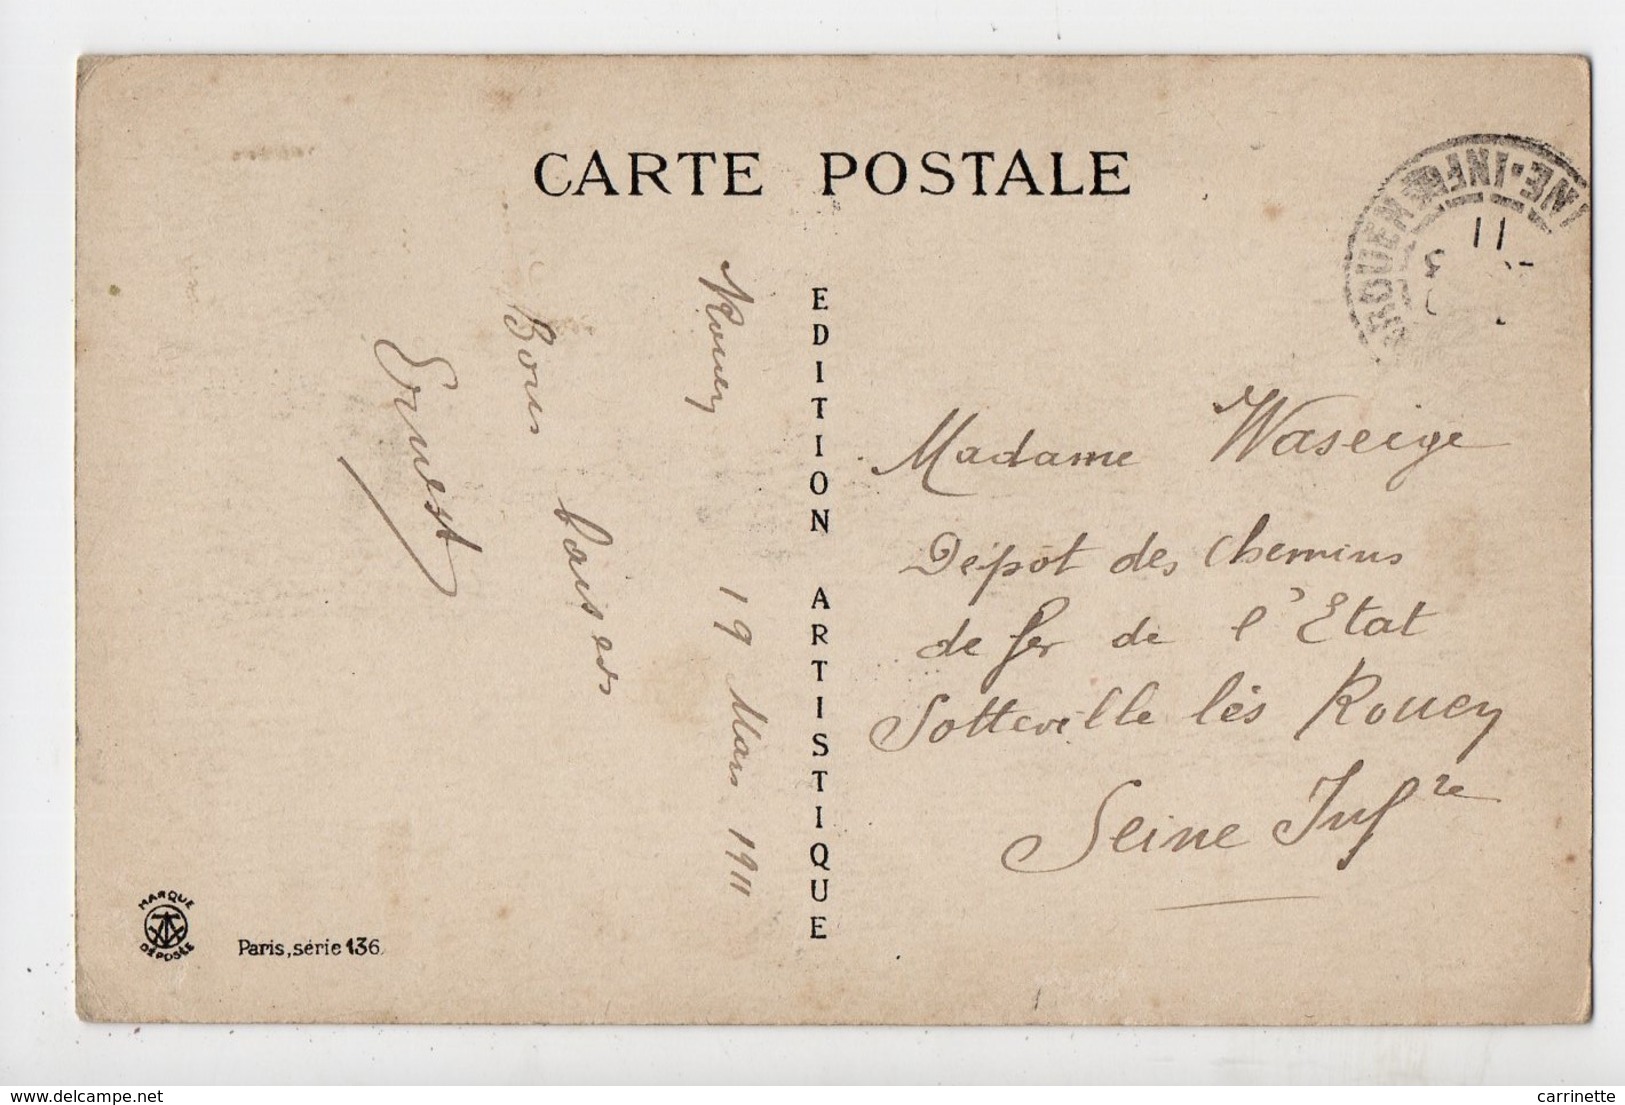 CARTE POSTALE
EDITION ARTISTIQUE
Rouen 19 Mars 1911
Bons baisers
Ernest
Madame Waseige
Dépôt des chemins
de fer de l'Etat
Sotteville lès Rouen
Seine Infre
ROUEN
INE-INFRE
11
MARQUE
DÉPOSÉE
Paris, série 136
delcampe.net
carrinette